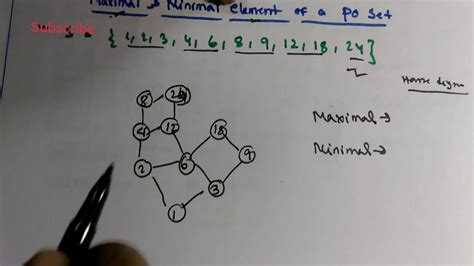 Maximal & Minimal Element of a PO Set
Subscribe
{ 1, 2, 3, 4, 6, 8, 9, 12, 18, 24 }
Hasse digm
8 24
4 12 18
Maximal →
Minimal →
2 6 9
3
1